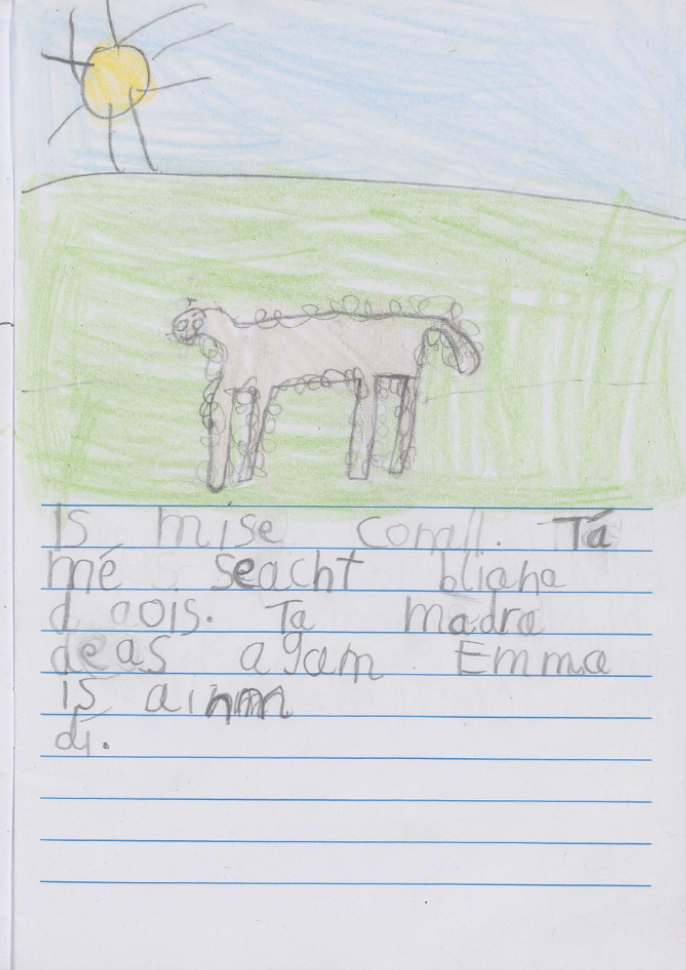 Is mise Conall. Tá
mé seacht bliana
d aois. Ta madra
deas agam Emma
is ainm
di.